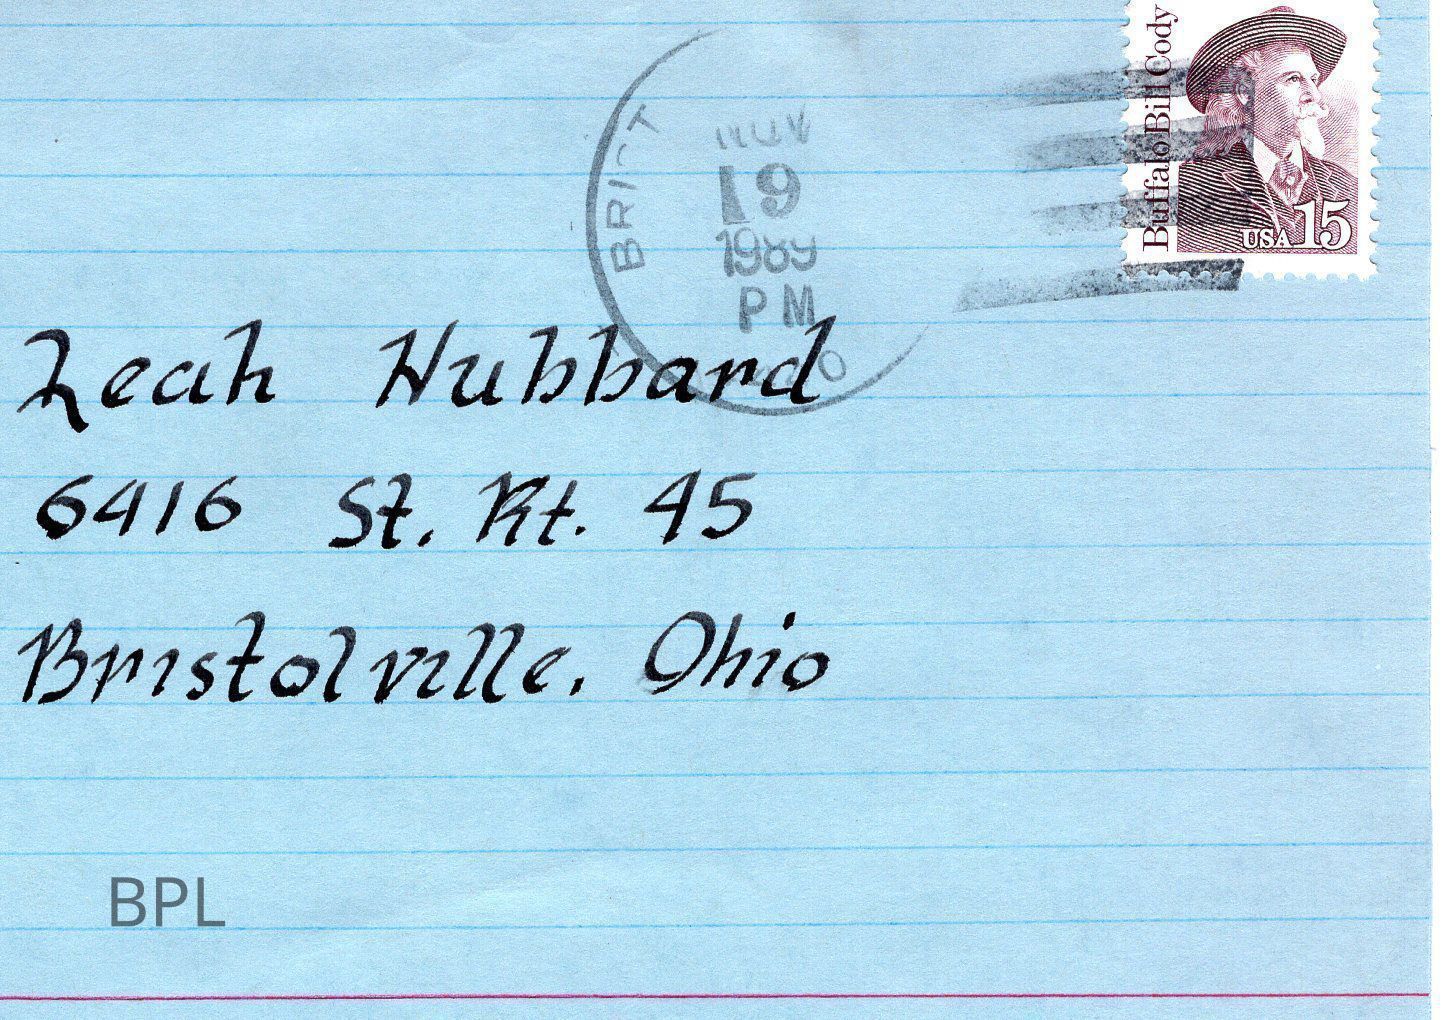 Buffalo Bill Cody
USA 15
NOV
19
1989
PM
Leah Hubbard
6416 St. Rt. 45
Bristolville, Ohio
BPL